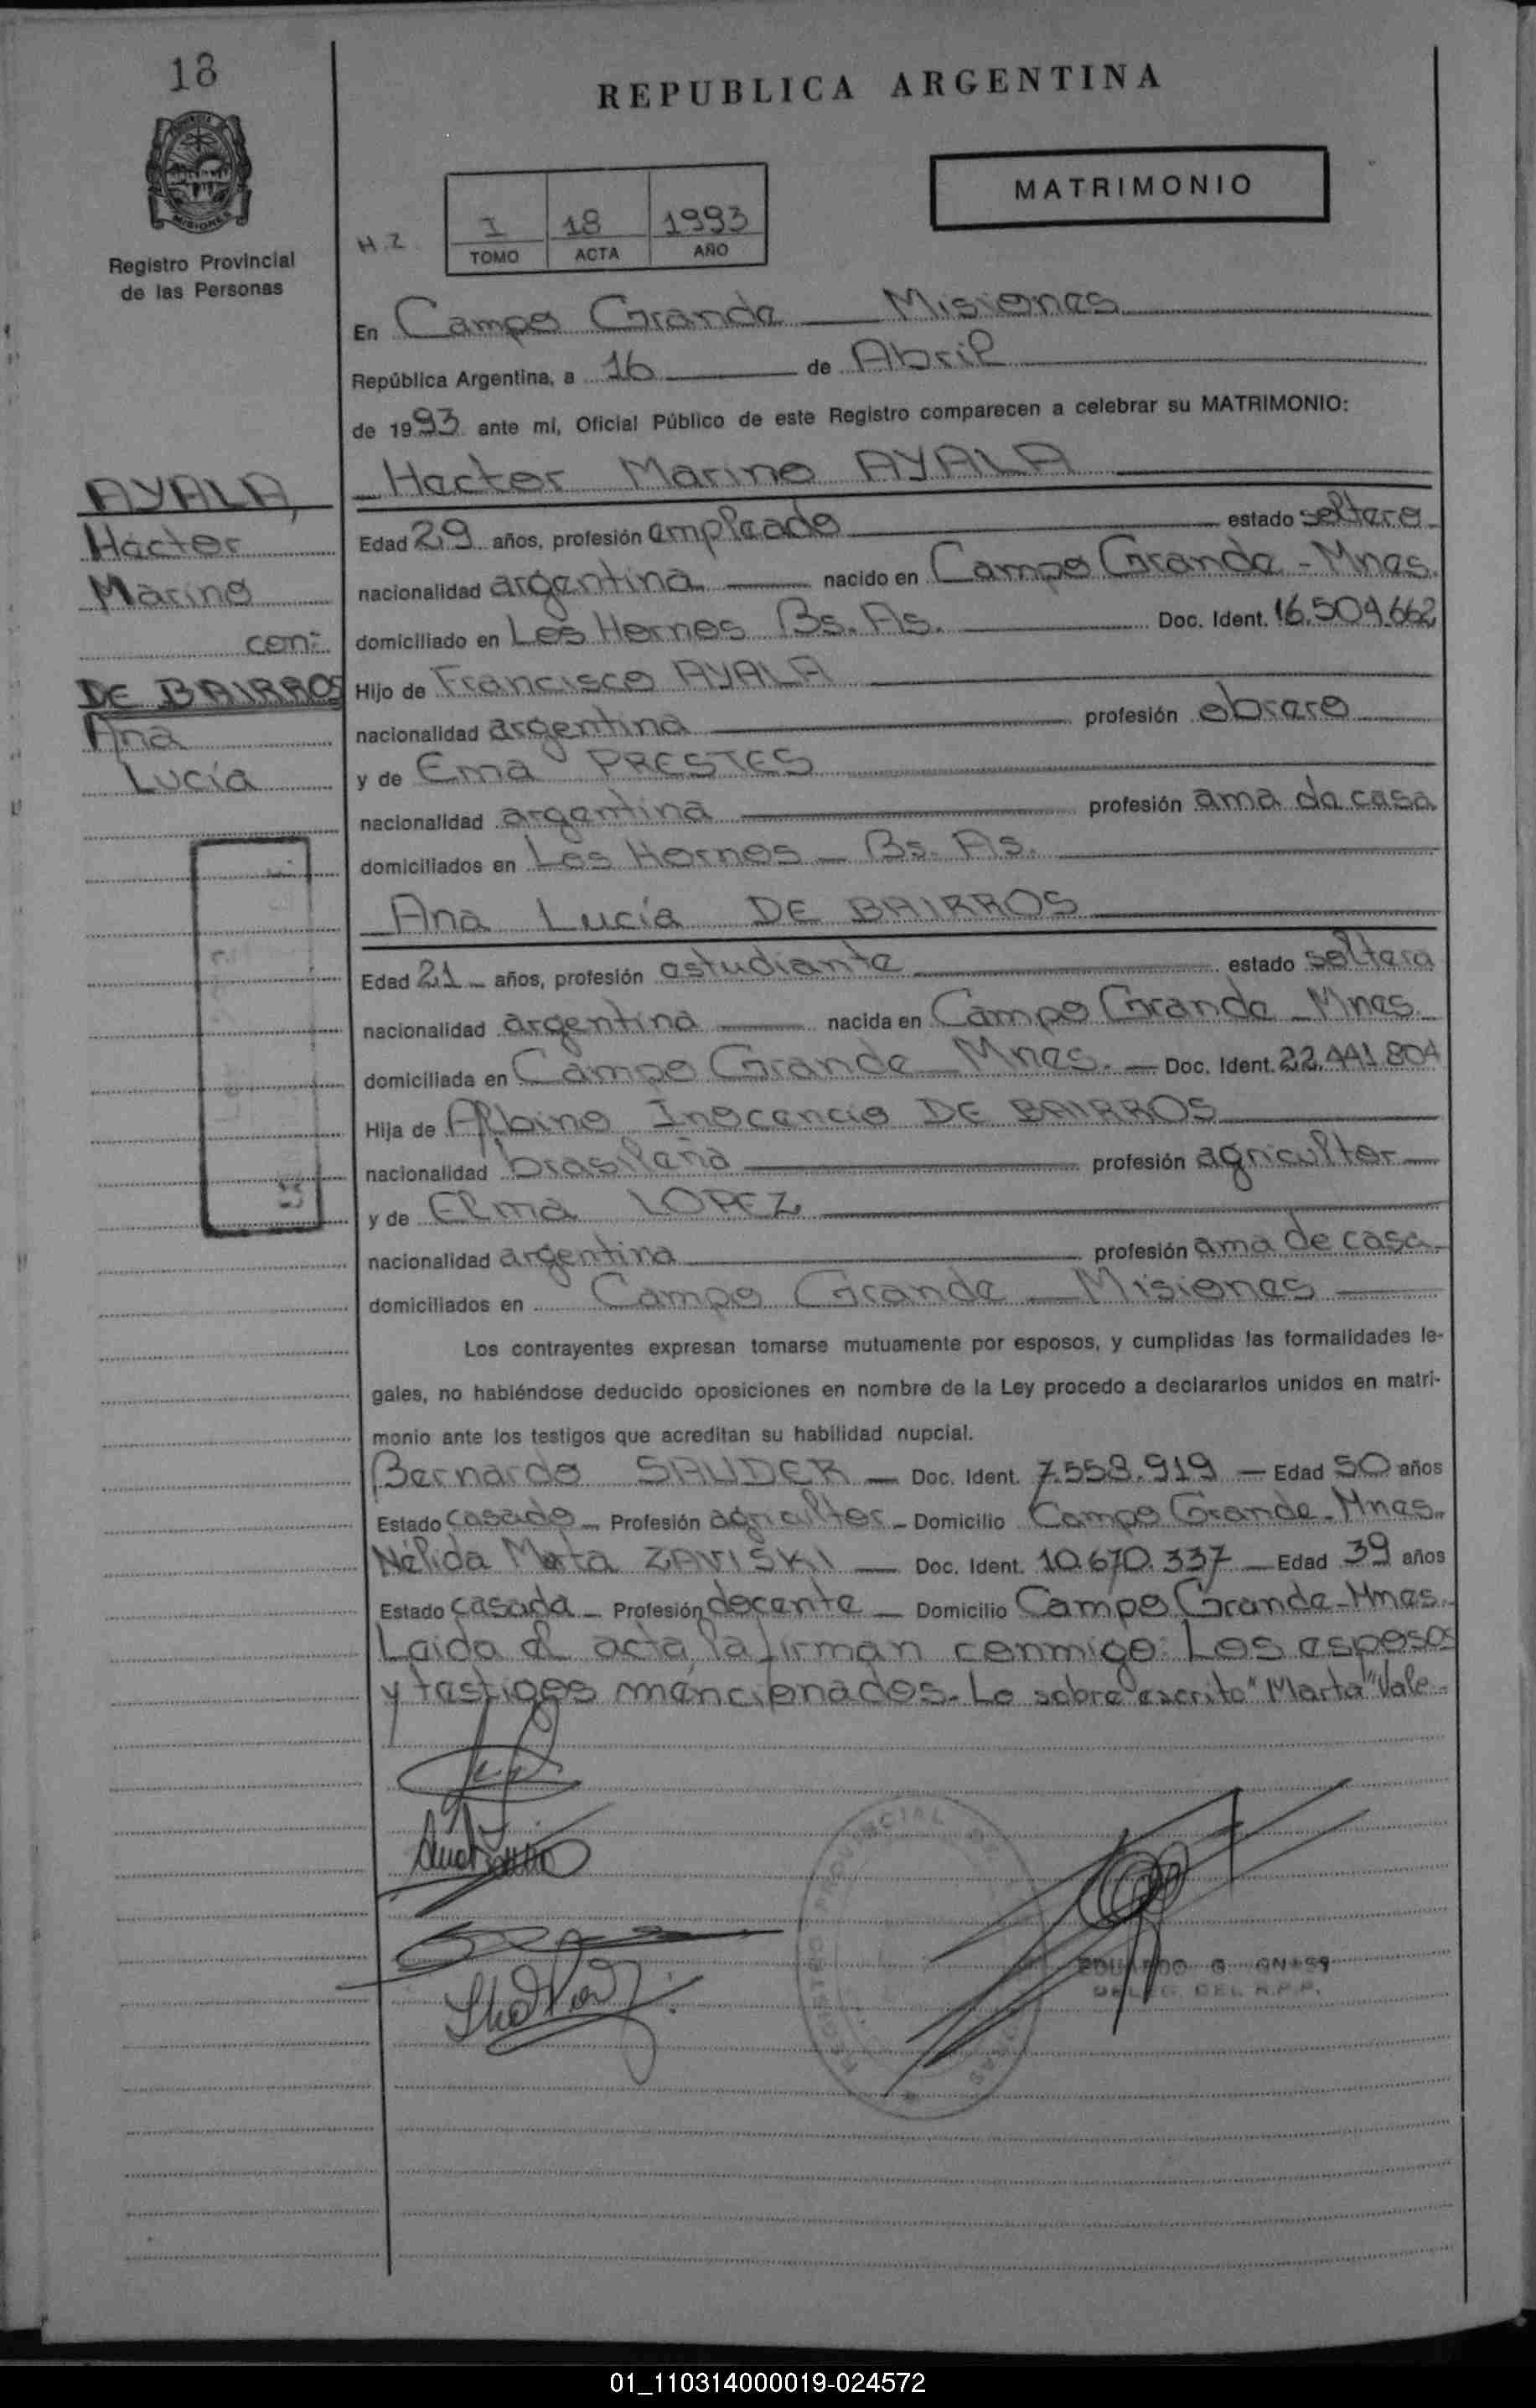 18
REPUBLICA ARGENTINA
MATRIMONIO
MISIONES
Registro Provincial
de las Personas
H.Z.
I 18 1993
TOMO ACTA AÑO
En Campo Grande Misiones
República Argentina, a 16 de Abril
de 1993 ante mi, Oficial Público de este Registro comparecen a celebrar su MATRIMONIO:
Hector Marino AYALA
AYALA,
Hector
Marino
con:
DE BAIRROS
Ana
Lucía
Edad 29 años, profesión empleado estado soltero
nacionalidad argentina nacido en Campo Grande - Mnes.
domiciliado en Los Hornos Bs. As. Doc. Ident. 16.504.662
Hijo de Francisco AYALA
nacionalidad argentina profesión obrero
y de Ema PRESTES
nacionalidad argentina profesión ama de casa
domiciliados en Los Hornos - Bs. As.
Ana Lucía DE BAIRROS
Edad 21 años, profesión estudiante estado soltera
nacionalidad argentina nacida en Campo Grande - Mnes.
domiciliada en Campo Grande - Mnes. Doc. Ident. 22.441.804
Hija de Albino Inocencio DE BAIRROS
nacionalidad brasileña profesión agricultor
y de Elma LOPEZ
nacionalidad argentina profesión ama de casa
domiciliados en Campo Grande - Misiones
Los contrayentes expresan tomarse mutuamente por esposos, y cumplidas las formalidades le-
gales, no habiéndose deducido oposiciones en nombre de la Ley procedo a declararlos unidos en matri-
monio ante los testigos que acreditan su habilidad nupcial.
Bernardo SAUDER Doc. Ident. 7.558.919 Edad 50 años
Estado casado Profesión agricultor Domicilio Campo Grande - Mnes.
Nélida Marta ZAVISKI Doc. Ident. 10.670.337 Edad 39 años
Estado casada Profesión docente Domicilio Campo Grande - Mnes.
Leida el acta, la firman conmigo: Los esposos
y testigos mencionados. Lo sobre escrito "Marta" Vale.
EDUARDO G.
DELEG. DEL R.P.P.
01_110314000019-024572